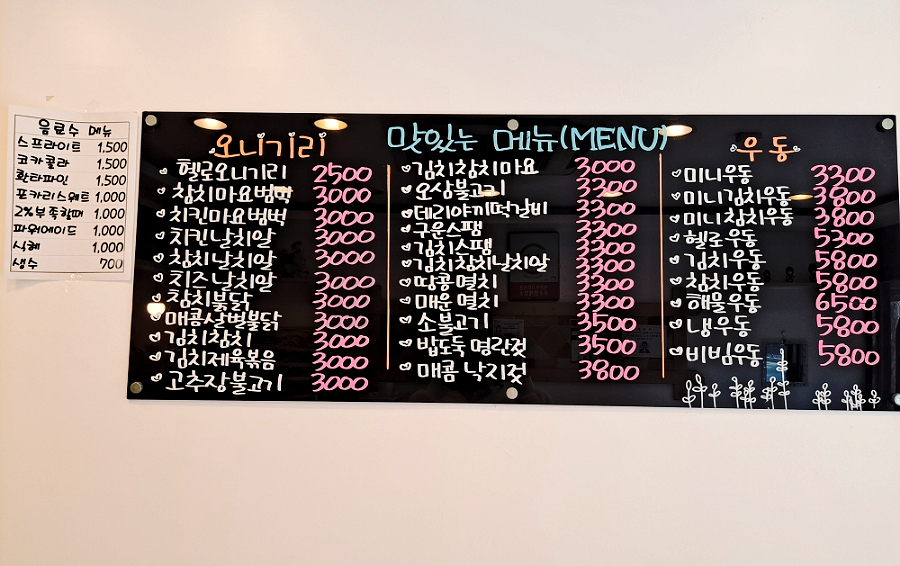 음료수 메뉴
스프라이트 1,500
코카콜라 1,500
환타파인 1,500
포카리스웨트 1,000
2%부족할때 1,000
파워에이드 1,000
식혜 1,000
생수 700
맛있는 메뉴(MENU)
오니기리
헬로오니기리 2500
참치마요범벅 3000
치킨마요범벅 3000
치킨날치알 3000
참치날치알 3000
치즈날치알 3000
참치불닭 3000
매콤살벌불닭 3000
김치참치 3000
김치제육볶음 3000
고추장불고기 3000
김치참치마요 3000
오삼불고기 3300
데리야끼떡갈비 3300
구운스팸 3300
김치스팸 3300
김치참치날치알 3300
땅콩멸치 3300
매운멸치 3300
소불고기 3500
밥도둑 명란젓 3500
매콤 낙지젓 3800
우동
미니우동 3300
미니김치우동 3800
미니참치우동 3800
헬로우동 5300
김치우동 5800
참치우동 5800
해물우동 6500
냉우동 5800
비빔우동 5800